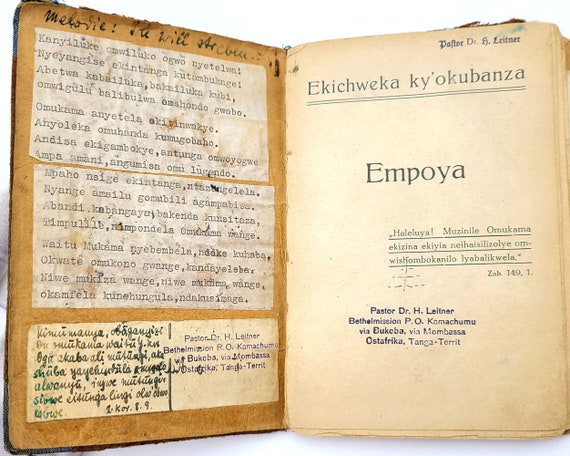 Melodie: Ich will streben..
Kanyiluke omwiluko ogwo nyetelwa:
Nyeyangise ekintanga kutambukage:
Abetwa kabailuka,bakailuka kubi,
omwigulu balibulwa omshondo gwabo.
Omukama anyetela ekitinwakye.
Anyoleka omuhanda kumugobaho.
Andisa ekigambokye,antunga omwoyogwe
Ampa amani,angumisa omu lugendo.
Mpaho nsige ekintanga,ntazongelela.
Nyange amailu gomubili agampabisa.
Abandi,kabangaya,bakenda kunsitama,
Timpulile,nimpondela Omukama wange.
Waitu Mukama nyebembela,ndeke kuhaba,
Okwate omukono gwange,kandayeleba.
Niwe mukiza wange,niwe mukama wange,
okamfela kunehungula,ndakusimaga.
Kinu manya, obuganyizi
bw mukama waitu
Ogo akaba ali mutungi, aka
2. Kor. 8. 9.
Pastor Dr. H. Leitner
Bethelmission P. O. Kamachumu
via Bukoba, via Mombassa
Ostafrika, Tanga-Territ
Pastor Dr. H. Leitner
Ekichweka ky'okubanza
Empoya
„Haleluya! Muzinile Omukama
ekizina ekiyla neihaisilizolye om-
wishombokanilo lyabalikwela."
Zab. 149, 1.
Pastor Dr. H. Leitner
Bethelmission P. O. Kamachumu
via Bukoba, via Mombassa
Ostafrika, Tanga-Territ